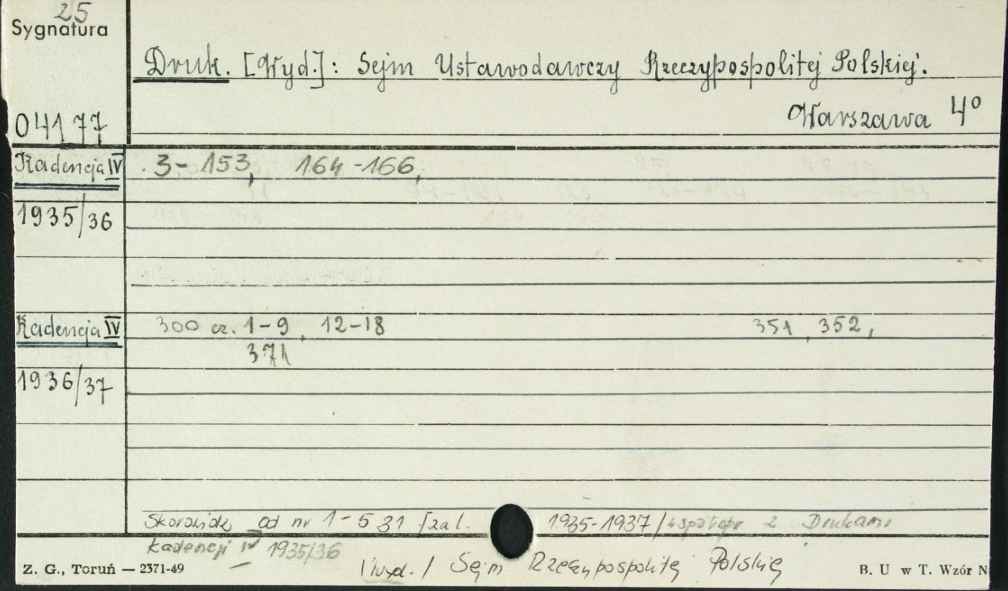 25
Sygnatura
Druk. [Wyd.]: Sejm Ustawodawczy Rzeczypospolitej Polskiej.
Warszawa 4°
04177
Kadencja IV 3-153, 164-166,
1935/36
Kadencja IV 300 cz. 1-9, 12-18 351, 352,
371
1936/37
Skorowidz od nr 1-531 [za l. 1935-1937/ współopr z Drukami
Kadencji IV 1935/36
/wyd./ Sejm Rzeczypospolitej Polskiej
Z. G., Toruń — 2371-49 B. U w T. Wzór N